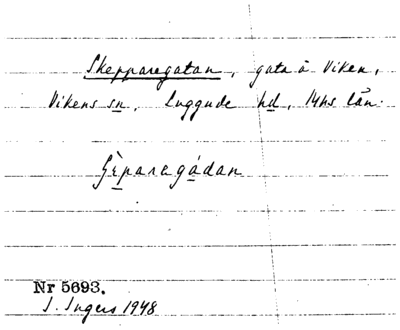 Skepparegatan, gata å Viken,
Vikens sn, Luggude hd, Mhs län.
Nr 5693.
I. Ingers 1948